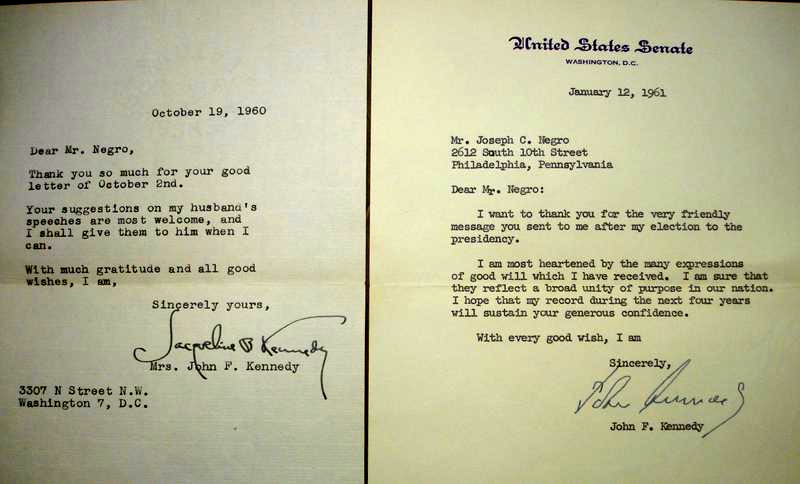 October 19, 1960
Dear Mr. Negro,
Thank you so much for your good
letter of October 2nd.
Your suggestions on my husband's
speeches are most welcome, and
I shall give them to him when I
can.
With much gratitude and all good
wishes, I am,
Sincerely yours,
Jacqueline B Kennedy
Mrs. John F. Kennedy
3307 N Street N.W.
Washington 7, D.C.
United States Senate
WASHINGTON, D.C.
January 12, 1961
Mr. Joseph C. Negro
2612 South 10th Street
Philadelphia, Pennsylvania
Dear Mr. Negro:
I want to thank you for the very friendly
message you sent to me after my election to the
presidency.
I am most heartened by the many expressions
of good will which I have received. I am sure that
they reflect a broad unity of purpose in our nation.
I hope that my record during the next four years
will sustain your generous confidence.
With every good wish, I am
Sincerely,
John Kennedy
John F. Kennedy